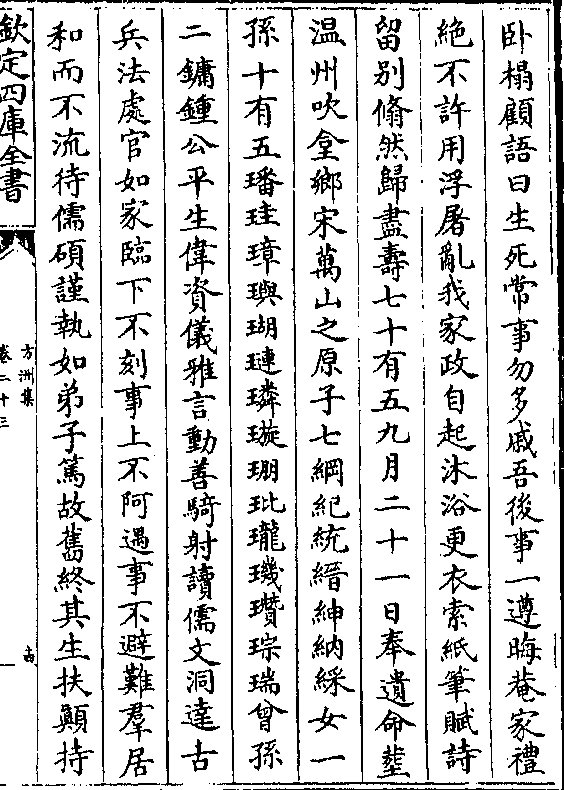 卧榻顧語曰生死常事勿多戚吾後事一遵晦菴家禮
絶不許用浮屠亂我家政自起沐浴更衣索紙筆賦詩
留别翛然歸盡壽七十有五九月二十一日奉遺命塟
温州吹臺鄉宋萬山之原子七綱紀統縉紳納綵女一
孫十有五璠珪璋璵瑚璉璘璇珊玭瓏璣瓚琮瑞曾孫
二鏞鍾公平生偉資儀雅言動善騎射讀儒文洞達古
兵法處官如家臨下不刻事上不阿遇事不避難羣居
和而不流待儒碩謹執如弟子篤故舊終其生扶顛持
欽定四庫全書
方洲集
卷二十三